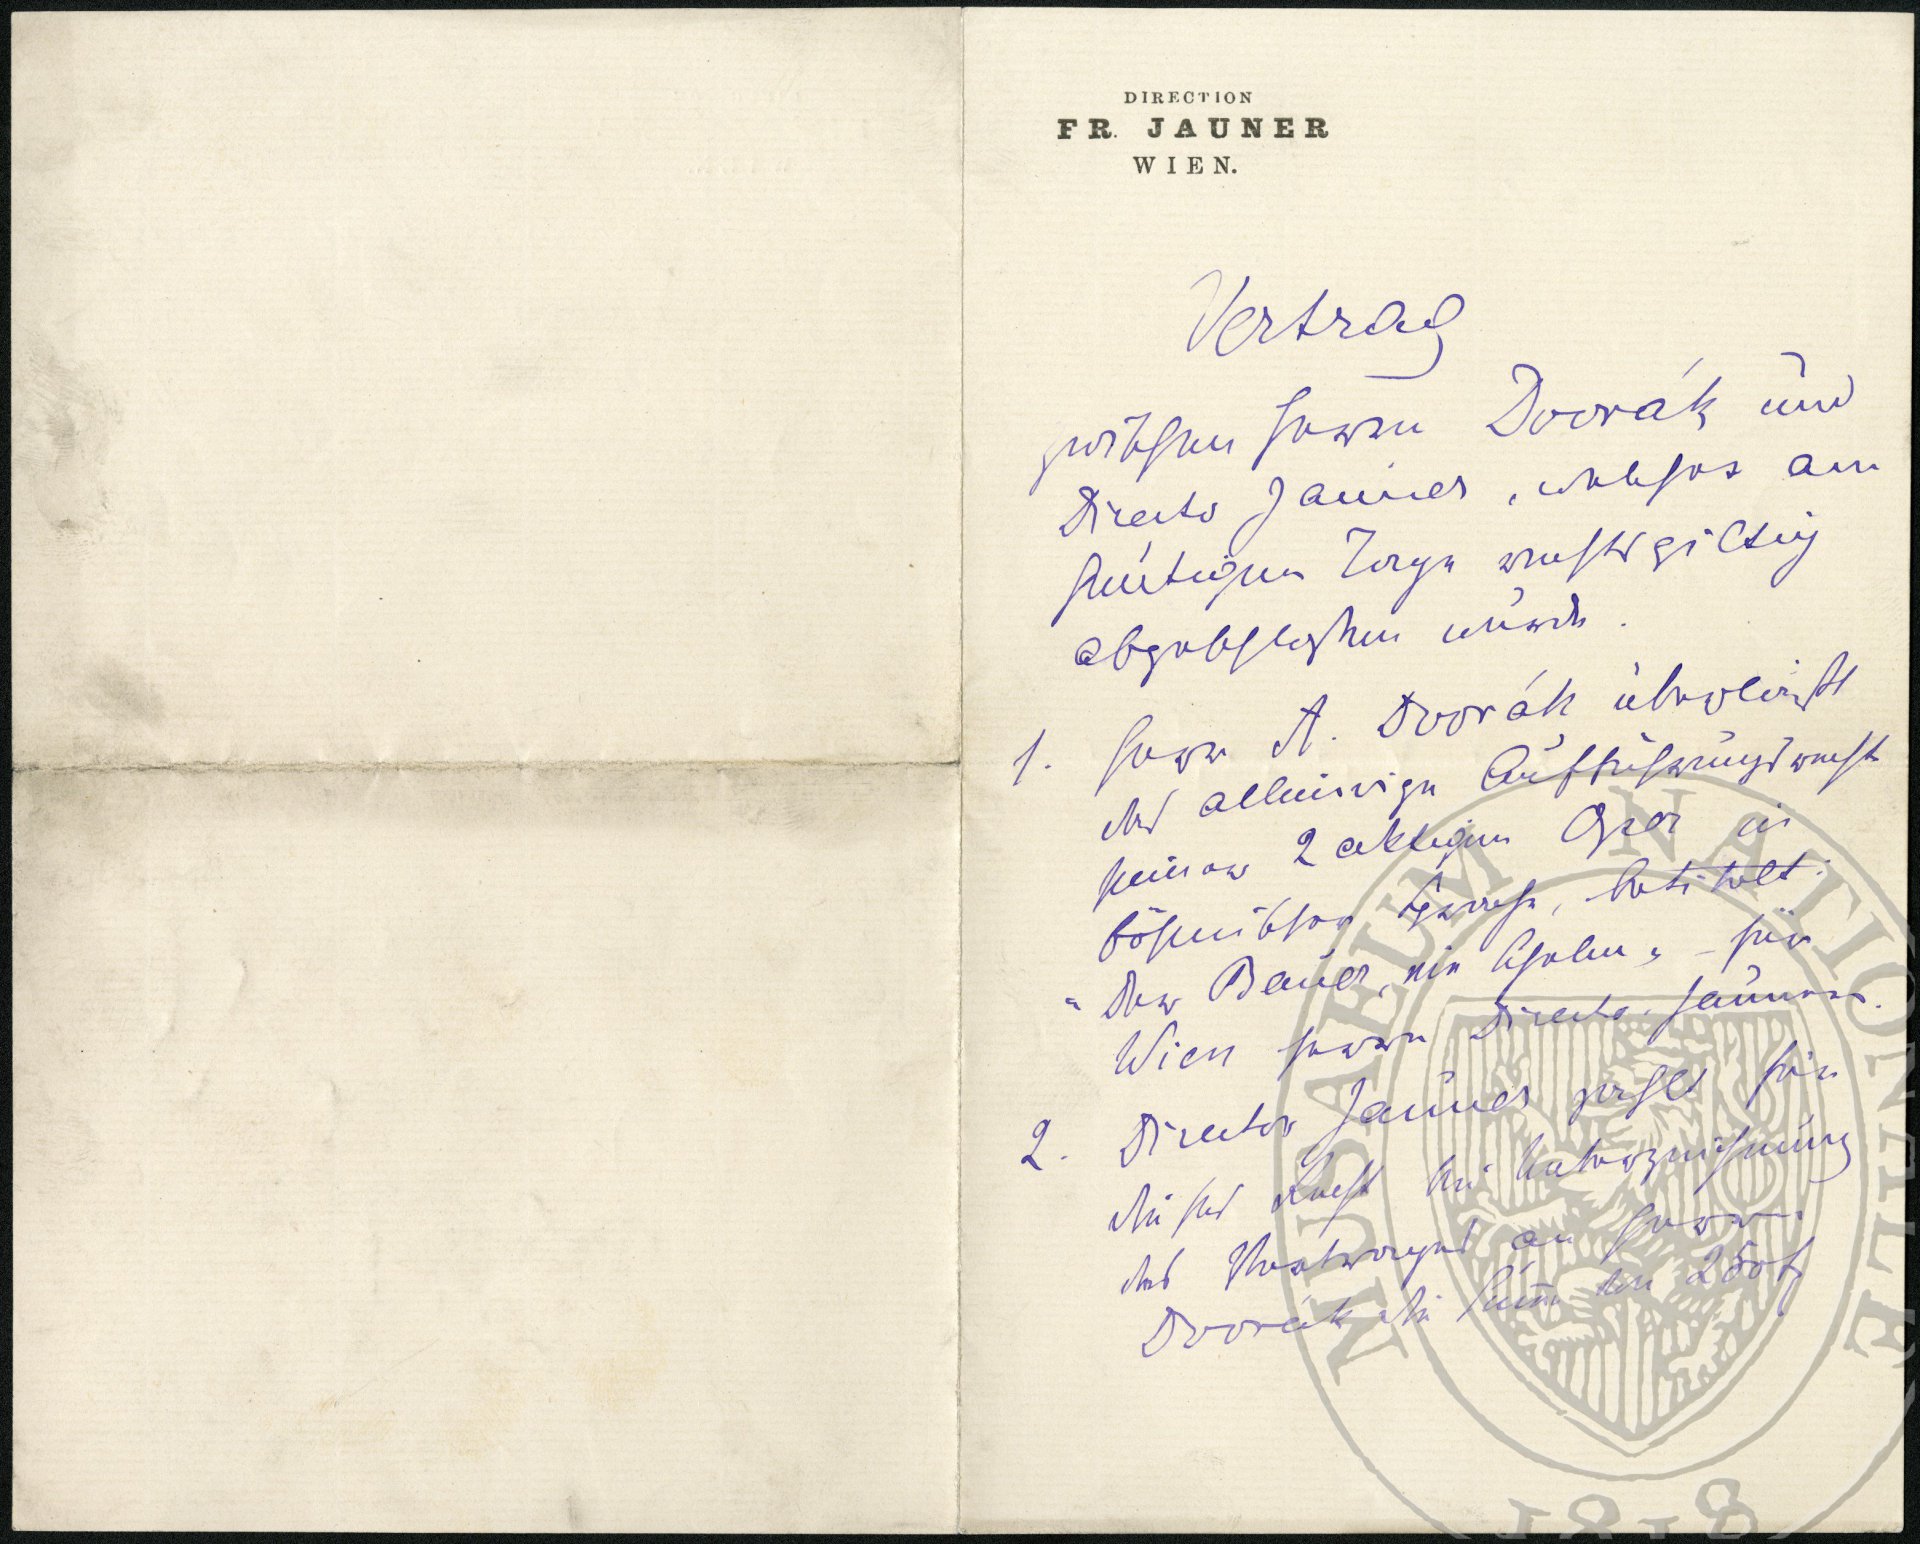 DIRECTION
FR. JAUNER
WIEN.
Vertrag
zwischen Herrn Dvorák und
Director Jauner, welcher am
heutigen Tage rechtsgiltig
abgeschlossen wurde.
1. Herr A. Dvorák überläßt
das alleinige Aufführungsrecht
seiner 2 aktigen Oper in
böhmischer Sprache, betitelt:
"Der Bauer, ein Schelm" – für
Wien Herrn Director Jauner.
2. Director Jauner zahlt für
dieses Recht bei Unterzeichnung
des Vertrages an Herrn
Dvorák die Summe von 250 f
MUSAEUM NATIONALE
1818